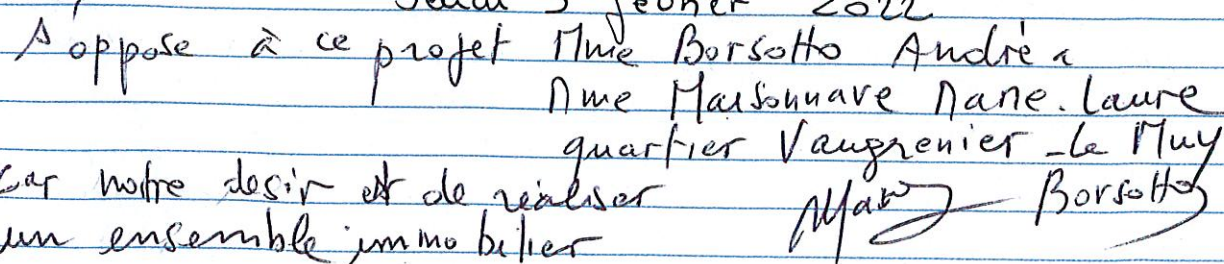 Jeudi 3 février 2022
S'oppose à ce projet Mme Borsotto Andrée
Mme Maisonnave Marie-Laure
quartier Vaugrenier - Le Muy
car notre desir est de réaliser
un ensemble immobilier
Borsotto